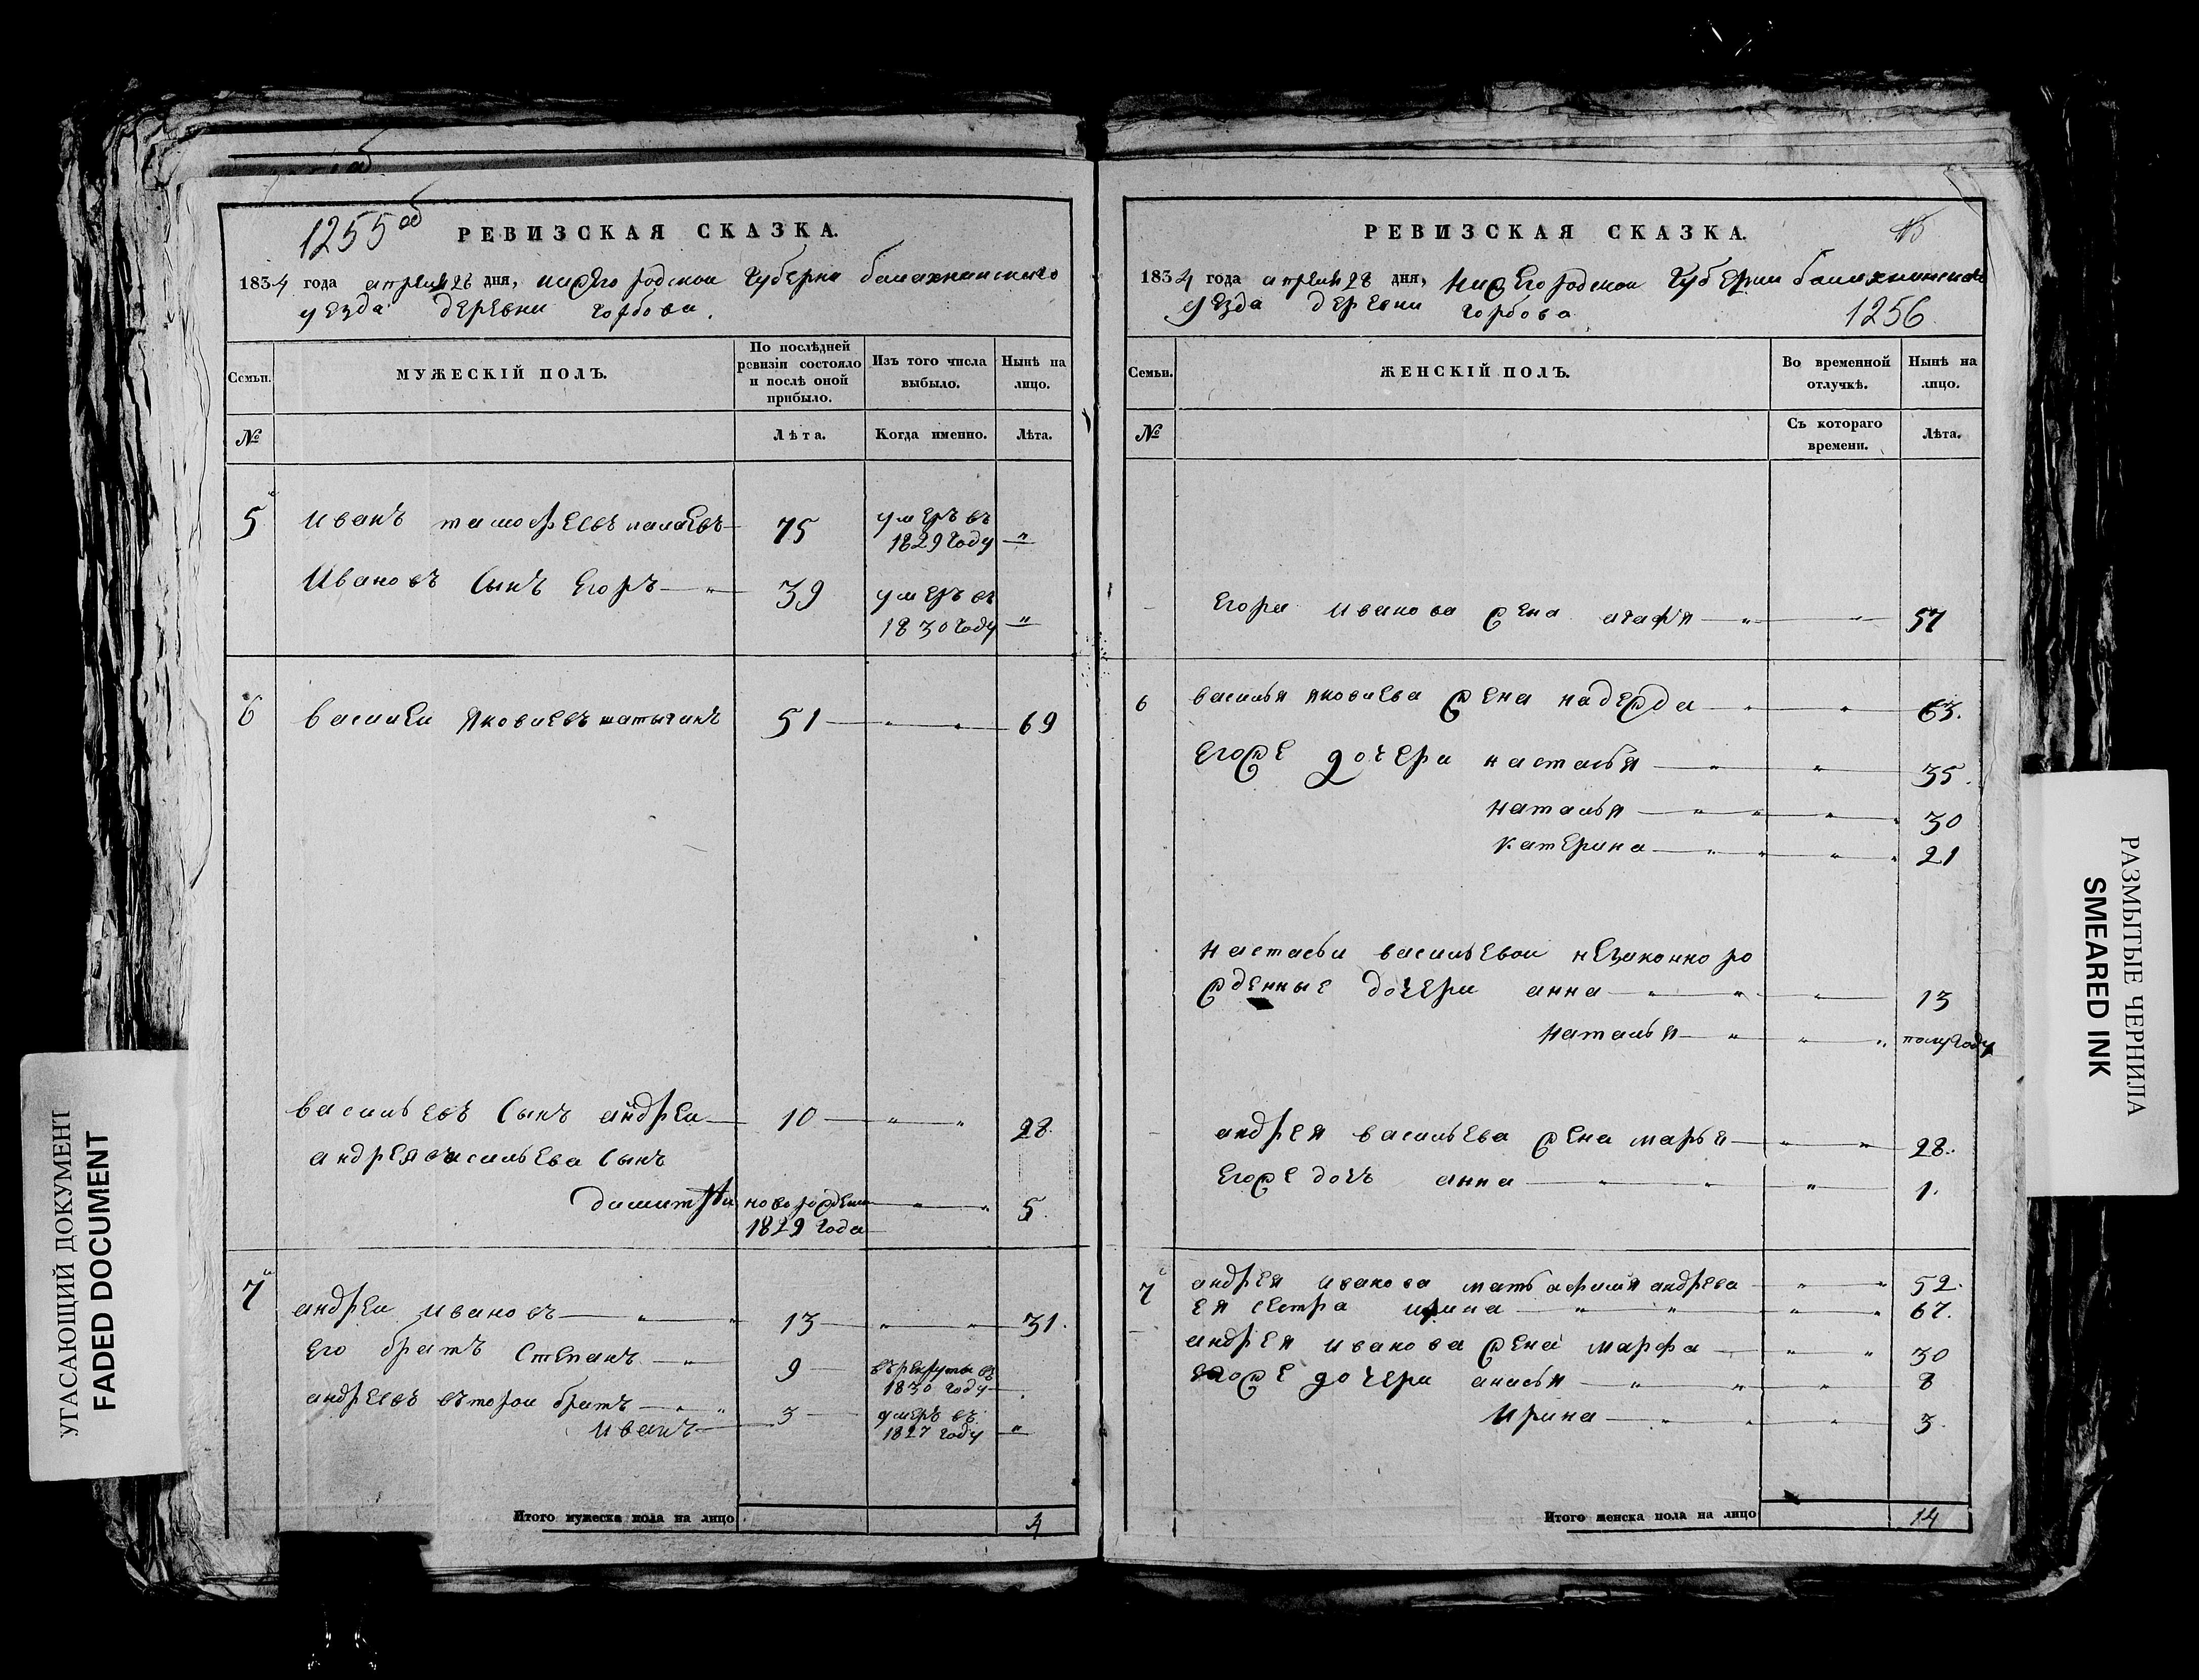 1255 об
РЕВИЗСКАЯ СКАЗКА.
1834 года апреля 28 дня, нижегородской губерни балахнинского
уезда деревни горбова.
Семьи.
МУЖЕСКІЙ ПОЛЪ.
По послѣдней ревизіи состояло и послѣ оной прибыло.
Изъ того числа выбыло.
Нынѣ на лицо.
№
Лѣта.
Когда именно.
Лѣта.
5 иванъ тимофеевъ 75 умеръ въ 1829 году "
Ивановъ Сынъ Егоръ — " 39 умеръ въ 1830 году "
6 василеи Яковлевъ 51 — " " — 69
васильевъ Сынъ андреи — 10 — " " 28.
андрея васильева Сынъ
димитреи новорожденъ 1829 года " " 5.
7 андреи ивановъ — " " 13 — " " 31.
Его братъ Степанъ — " 9 — въ рекруты въ 1830 году — .
андреевъ второи братъ — " "
иванъ — 3 — умеръ въ 1827 году "
Итого мужеска пола на лицо 4
РЕВИЗСКАЯ СКАЗКА.
1834 года апреля 28 дня, нижегородской губернии балахнинского
уезда деревни горбова
1256
Семьи.
ЖЕНСКІЙ ПОЛЪ.
Во временной отлучкѣ.
Нынѣ на лицо.
№
Съ котораго времени.
Лѣта.
Егора иванова жена агафя — " " 57
6 василья яковлева жена надежда — " " 63.
Егоже дочери настасья — " " 35.
Наталья — " " " " 30
Катерина — " " " " 21
Настасьи васильевои незаконноро
жденные дочери анна — " " " 13
Наталья — " " " полугоду
андрея васильева жена марья — " " 28.
Егоже дочь анна — " " " 1.
7 андрея иванова мать афимя андрева — " " 52.
ея сестра ирина — " " " " 67.
андрея иванова жена марфа — " " 30
егоже дочери анасья — " " " 8
Ирина — " " " 3.
Итого женска пола на лицо 14
УГАСАЮЩИЙ ДОКУМЕНТ
FADED DOCUMENT
РАЗМЫТЫЕ ЧЕРНИЛА
SMEARED INK